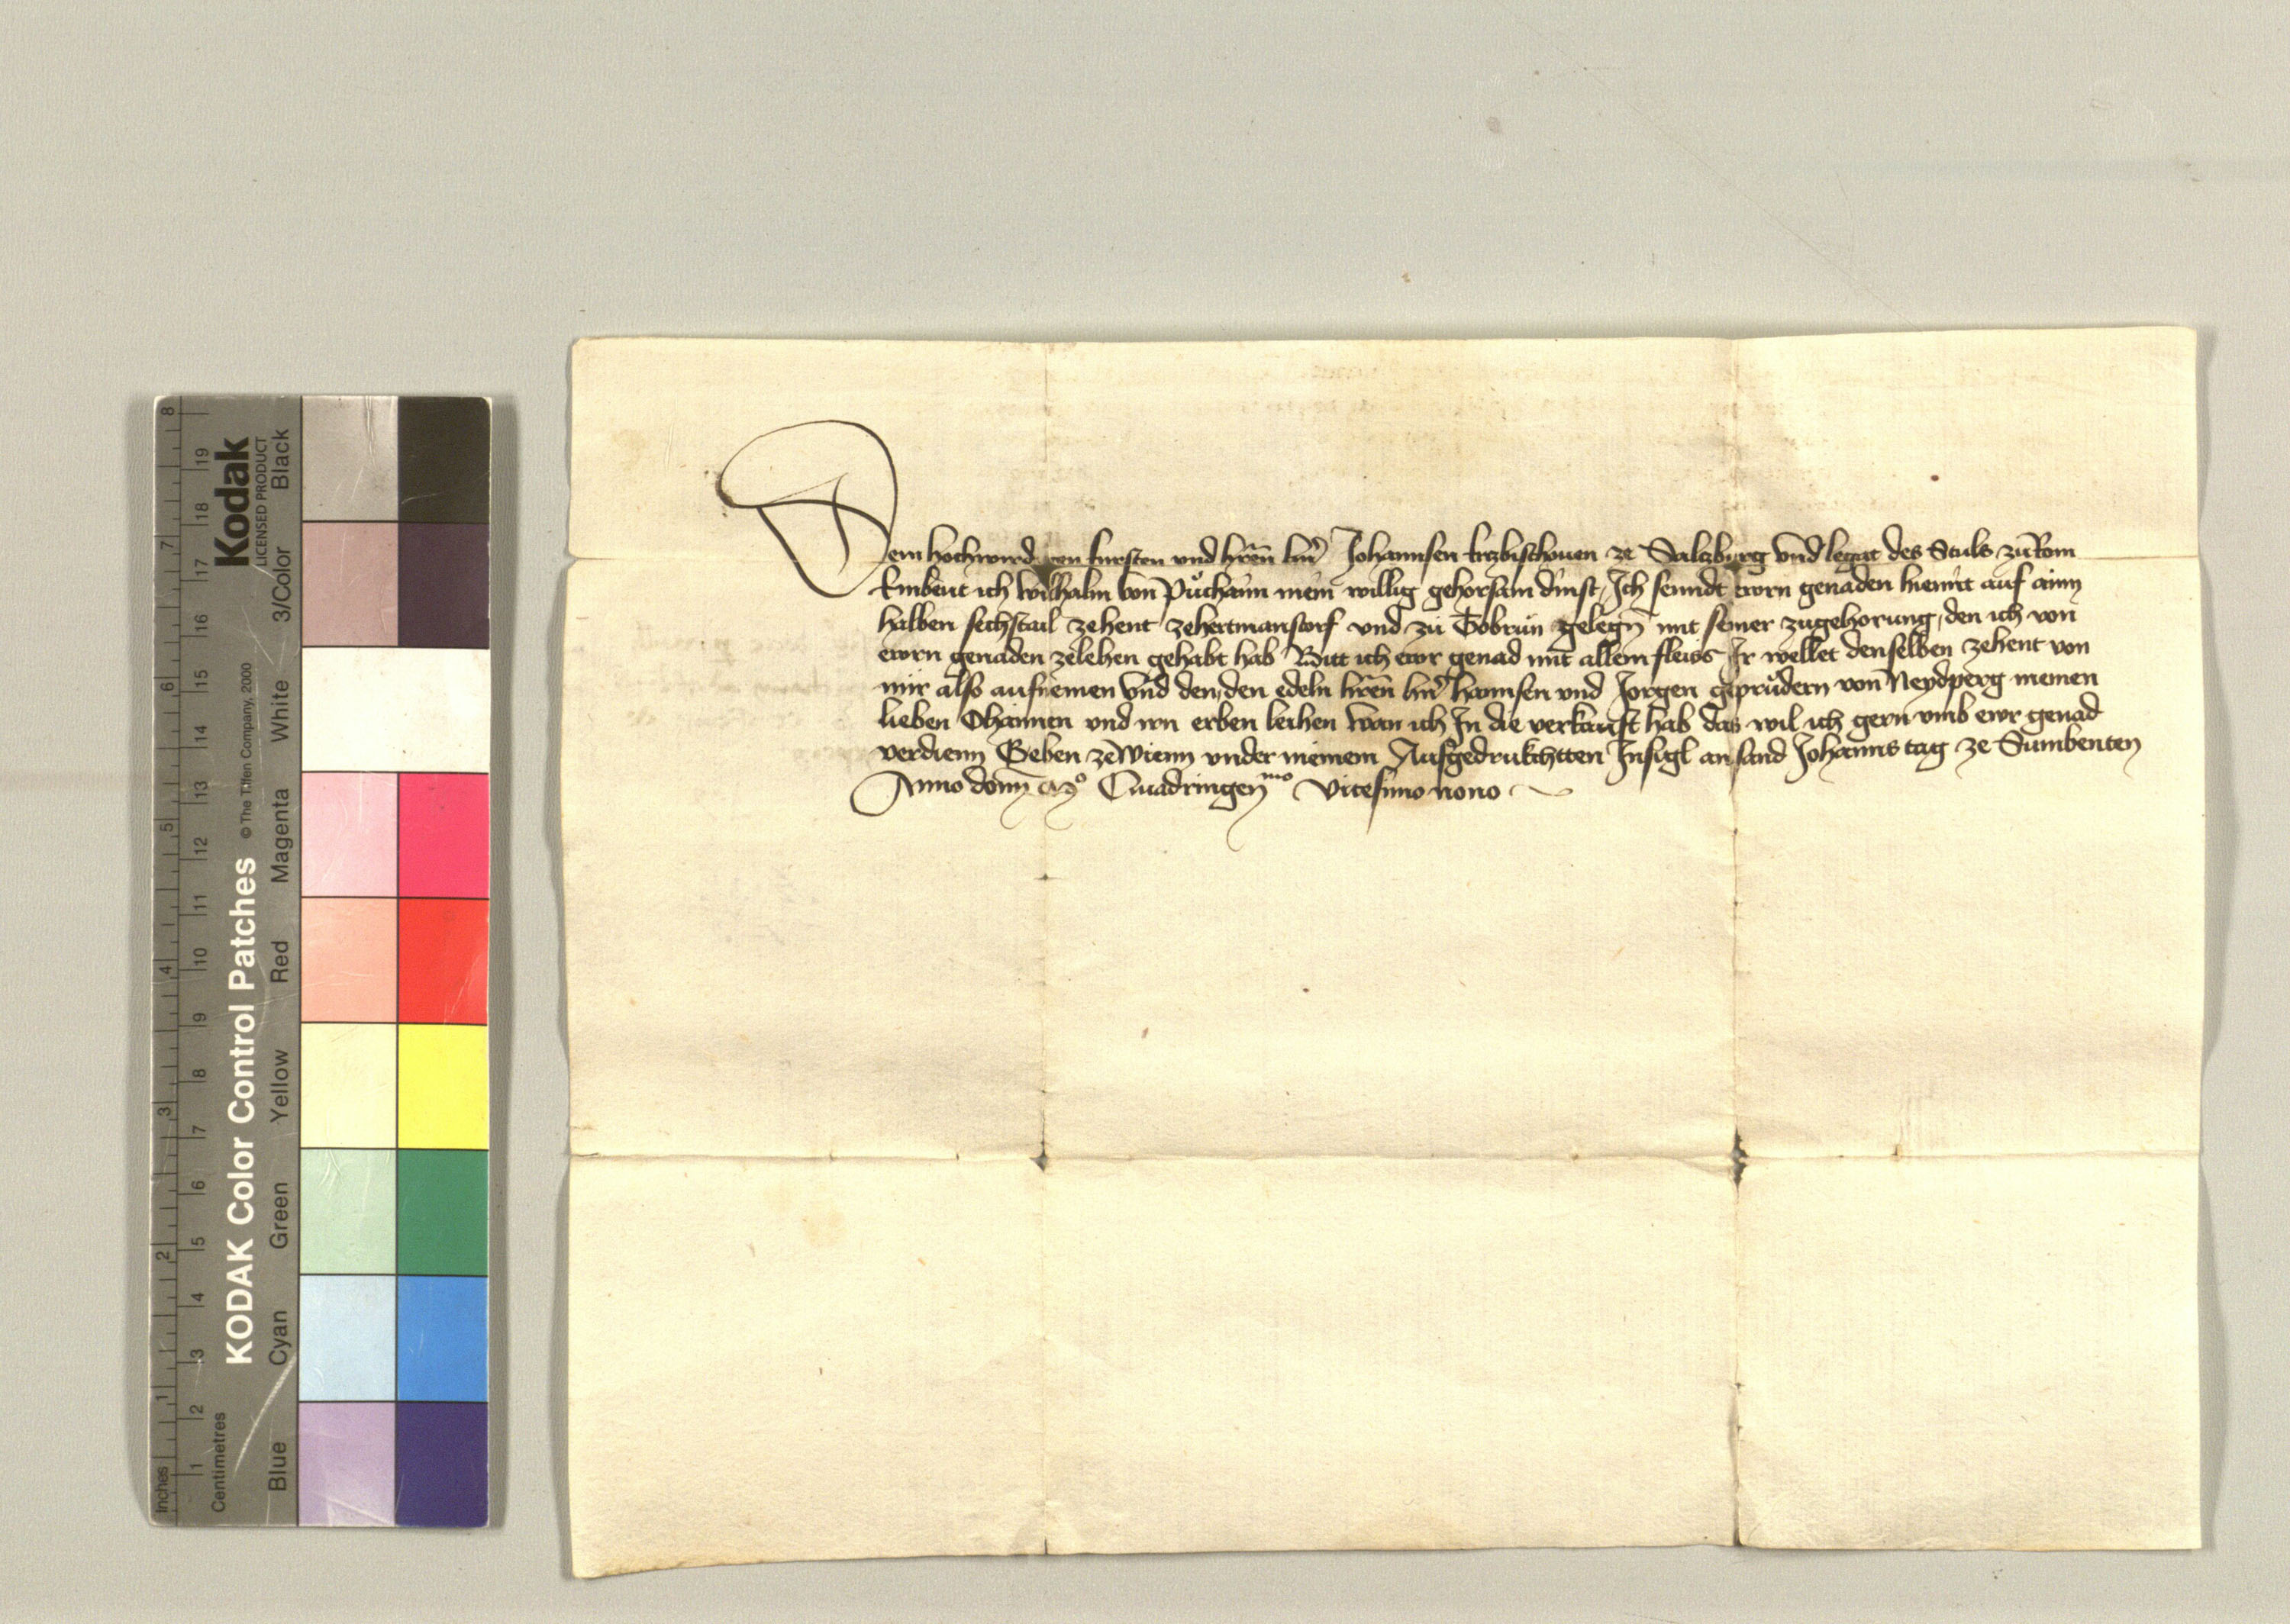 Dem hochwirdigen fursten vnd hern hern Johannsen Erzbischouen ze Salczburg vnd legat des Stuls zu Rom
Embeut ich Wilhalm von Puchaim mein willig gehorsam dinst, Ich senndt ewrn genaden hiemit auf ainn
halben sechstail zehent zehertmanstorf vnd zu Gobrun gelegn mit seiner zugehorung, den ich von
ewrn genaden zelehen gehabt hab Bitt ich ewr genad mit allem fleiss Ir wellet denselben zehent von
mir also aufnemen vnd den, den edeln hern hern hannsen vnd Jorgen geprudern von Neydperg meinen
lieben Ohaimen vnd irn erben leihen wan ich In die verkauft hab das wil ich gern vmb ewr genad
verdienn Geben ze Wienn vnder meinem Aufgedrukchtten Insigl an sand Johanns tag ze Sunbenten
Anno domini mo Quadringenmo vicesimo nono
Kodak
LICENSED PRODUCT
KODAK Color Control Patches
© The Tiffen Company, 2000
Black
3/Color
White
Magenta
Red
Yellow
Green
Cyan
Blue
Centimetres
1 2 3 4 5 6 7 8 9 10 11 12 13 14 15 16 17 18 19
Inches
1 2 3 4 5 6 7 8